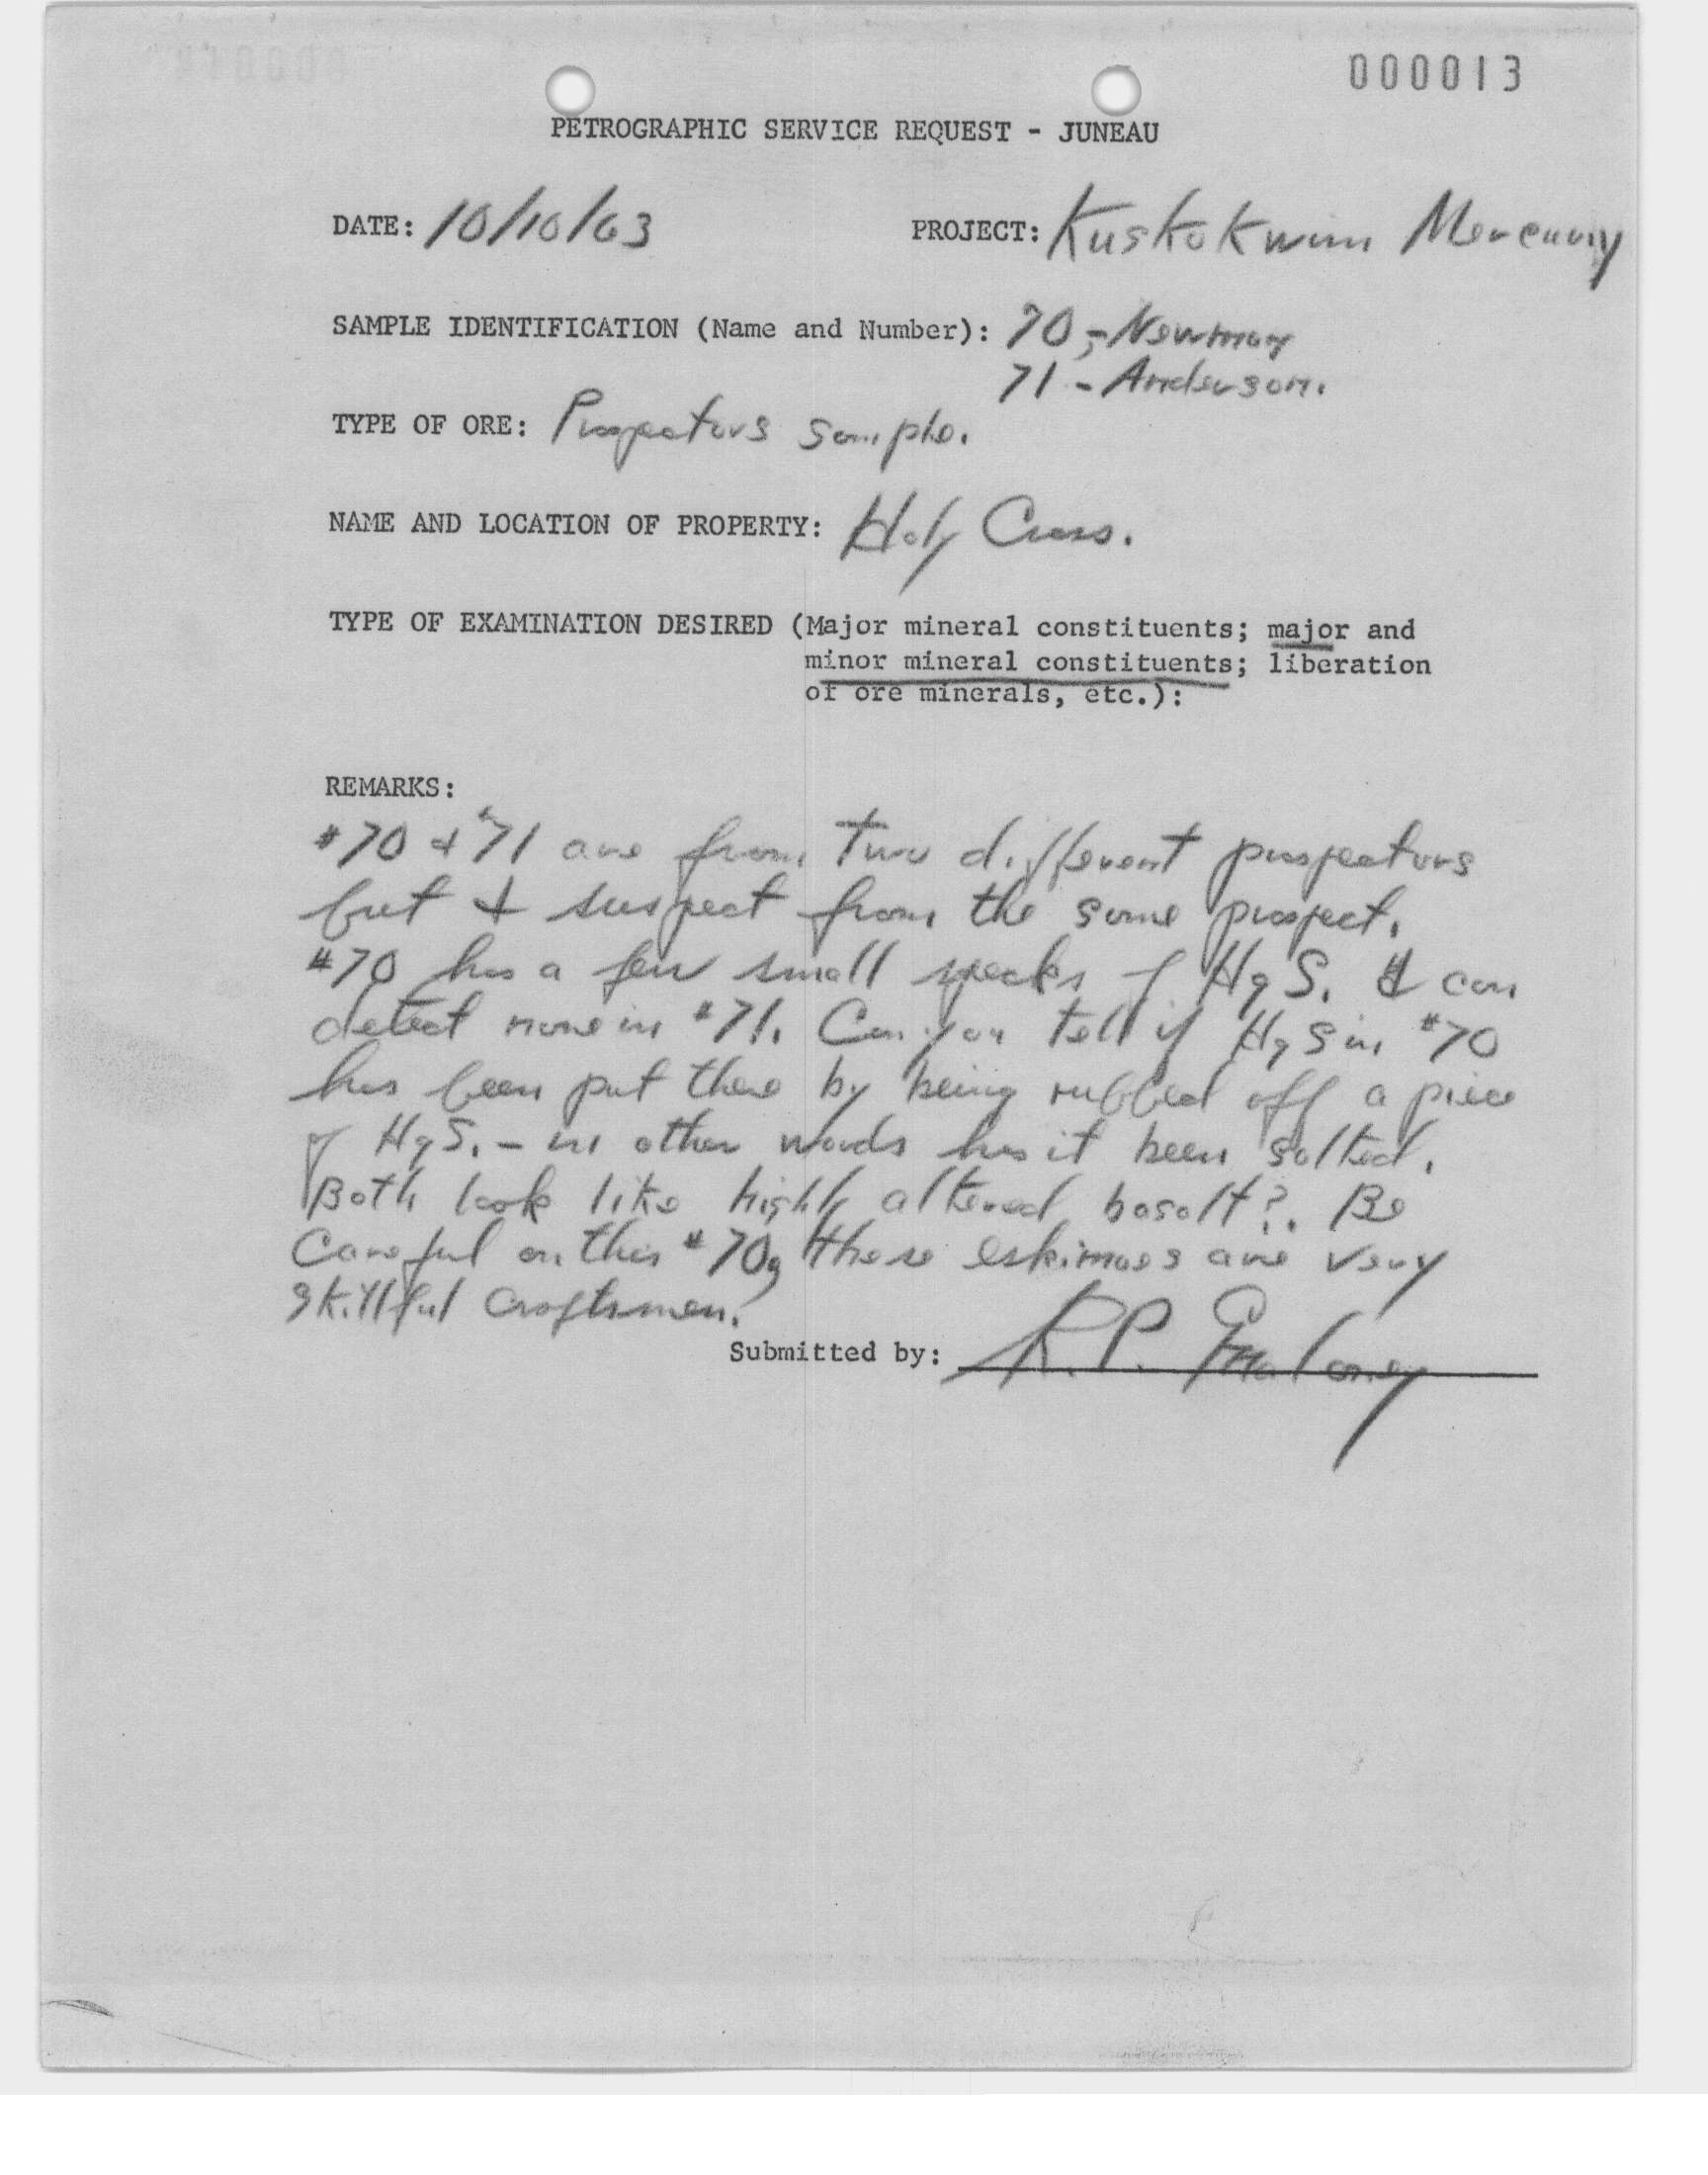 000013
PETROGRAPHIC SERVICE REQUEST - JUNEAU
DATE: 10/10/63 PROJECT: Kuskokwim Mercury
SAMPLE IDENTIFICATION (Name and Number): 70,- Newman
71 - Anderson.
TYPE OF ORE: Prospectors sample.
NAME AND LOCATION OF PROPERTY: Holy Cross.
TYPE OF EXAMINATION DESIRED (Major mineral constituents; major and
minor mineral constituents; liberation
of ore minerals, etc.):
REMARKS:
#70 & #71 are from two different prospectors
but I suspect from the same prospect.
#70 has a few small specks of HgS. I can
detect none in #71. Can you tell if HgS in #70
has been put there by being rubbed off a piece
of HgS. - in other words has it been salted.
Both look like highly altered basalt?. Be
Careful on this #70, these eskimoes are very
skillful craftsmen.
Submitted by: R.P. Maloney